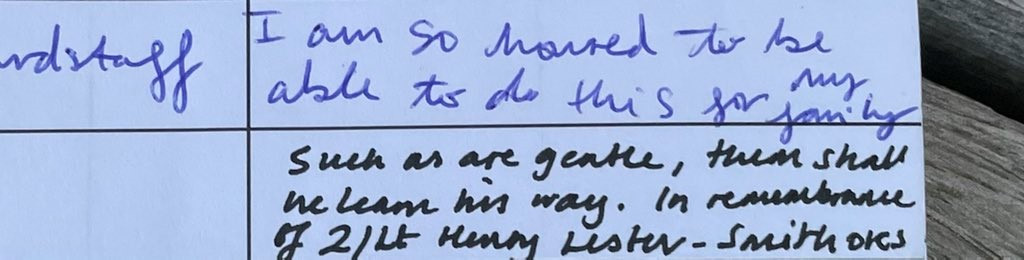 rdstaff
I am so honred to be
able to do this for my
family
Such as are gentle, them shall
he learn his way. In remembrance
of 2/Lt Henry Lester-Smith OKS